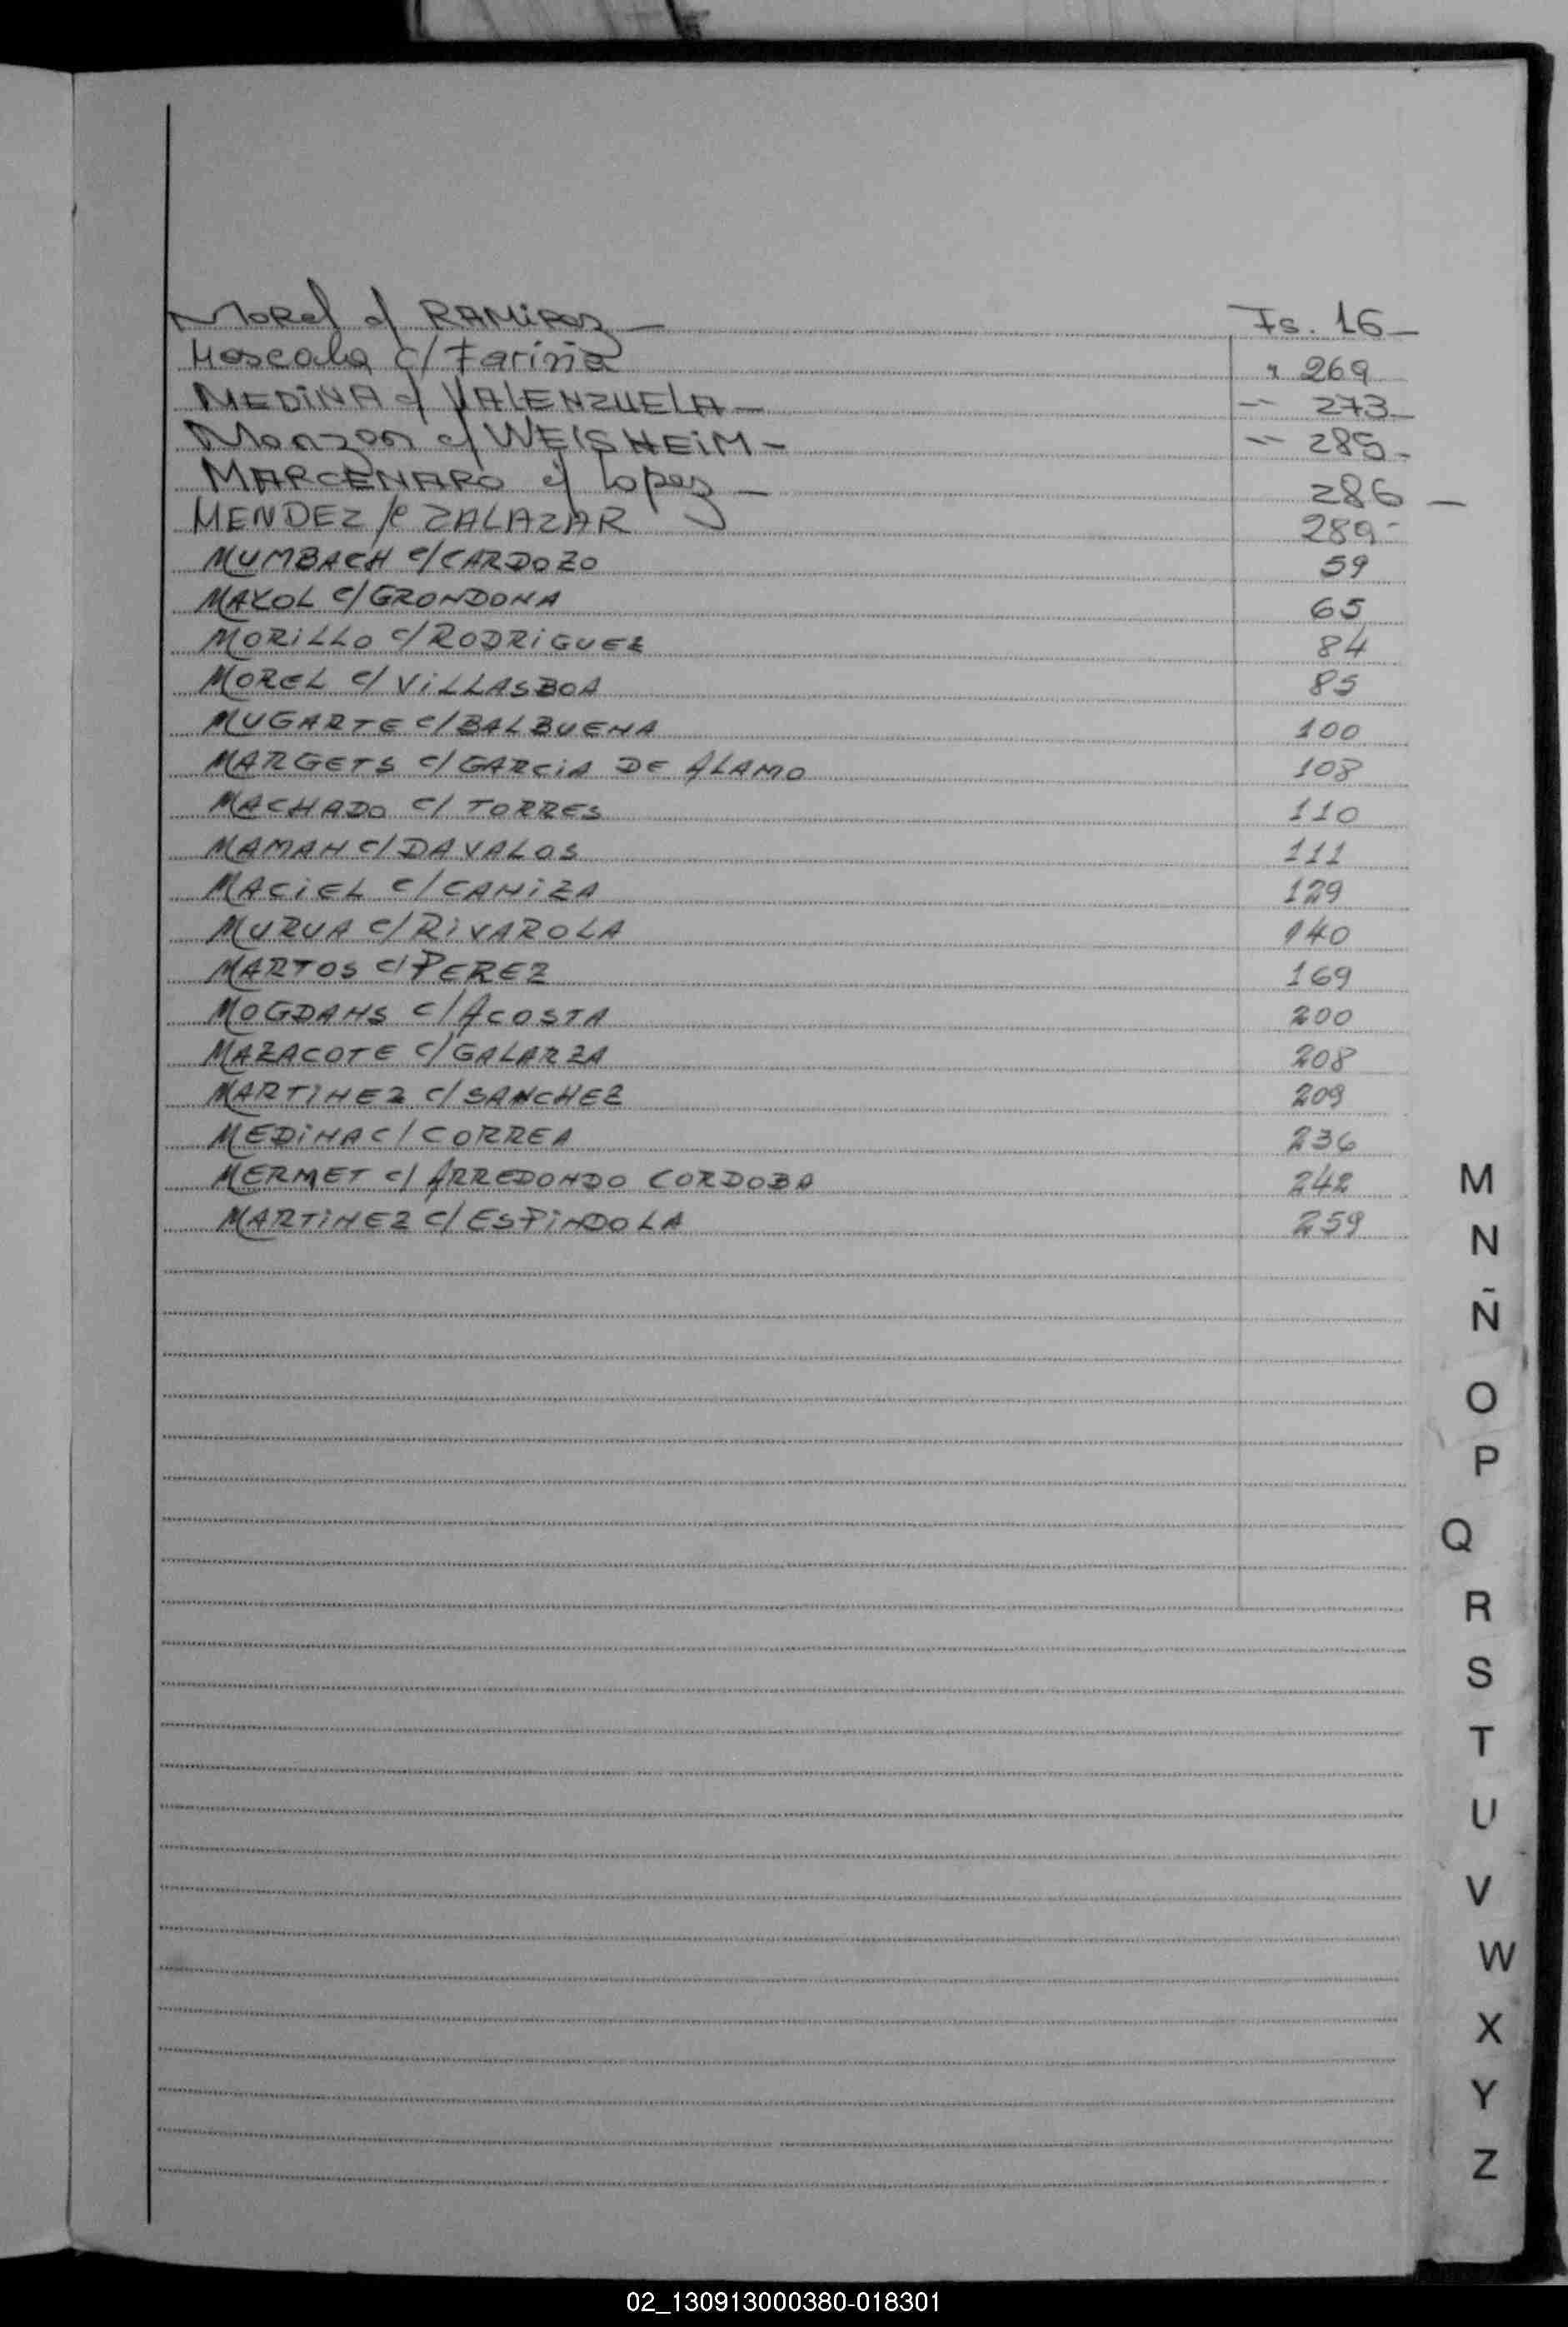 Morel c/ RAMiRez — Fs. 16 —
Moscalo c/ Fariña " 269
MEDiNA c/ VALENZUELA — " 273 —
Monzon c/ WEISHEiM — " 285 -
MARCENARO c/ Lopez — 286 —
MENDEZ /c ZALAZAR 289 -
MUMBACH c/ CARDOZO 59
MAYOL c/ GRONDONA 65
MORiLLO c/ RODRiGUEZ 84
MOREL c/ ViLLASBOA 85
MUGARTE c/ BALBUENA 100
MARGETS c/ GARCiA DE ALAMO 108
MACHADO c/ TORRES 110
MAMAN c/ DAVALOS 111
MACiEL c/ CANiZA 129
MURUA c/ RiVAROLA 140
MARTOS c/ PEREZ 169
MOGDANS c/ ACOSTA 200
MAZACOTE c/ GALARZA 208
MARTiNEZ c/ SANCHEZ 209
MEDiNA c/ CORREA 236
MERMET c/ ARREDONDO CORDOBA 242
MARTiNEZ c/ ESPiNDOLA 259
M
N
Ñ
O
P
Q
R
S
T
U
V
W
X
Y
Z
02_130913000380-018301